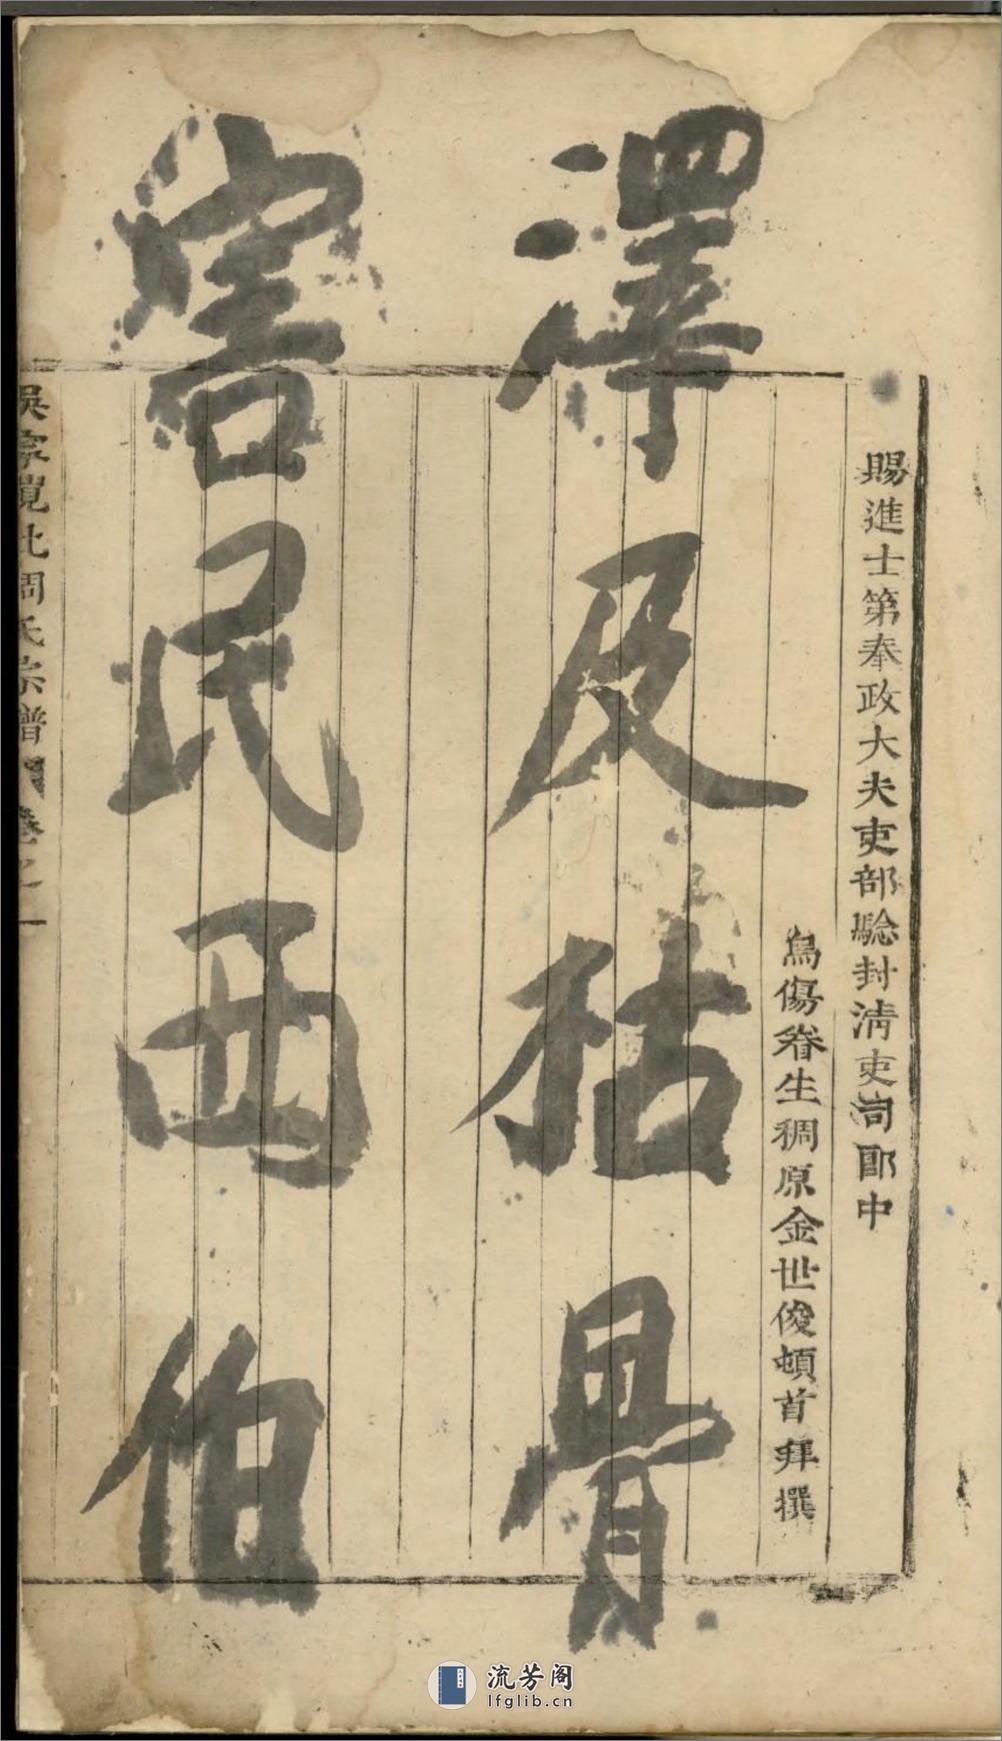 賜進士第奉政大夫吏部驗封清吏司郎中
烏傷眷生稠原金世俊頓首拜撰
澤及枯骨
害民西伯
周氏宗譜 卷之一
流芳阁
lfglib.cn